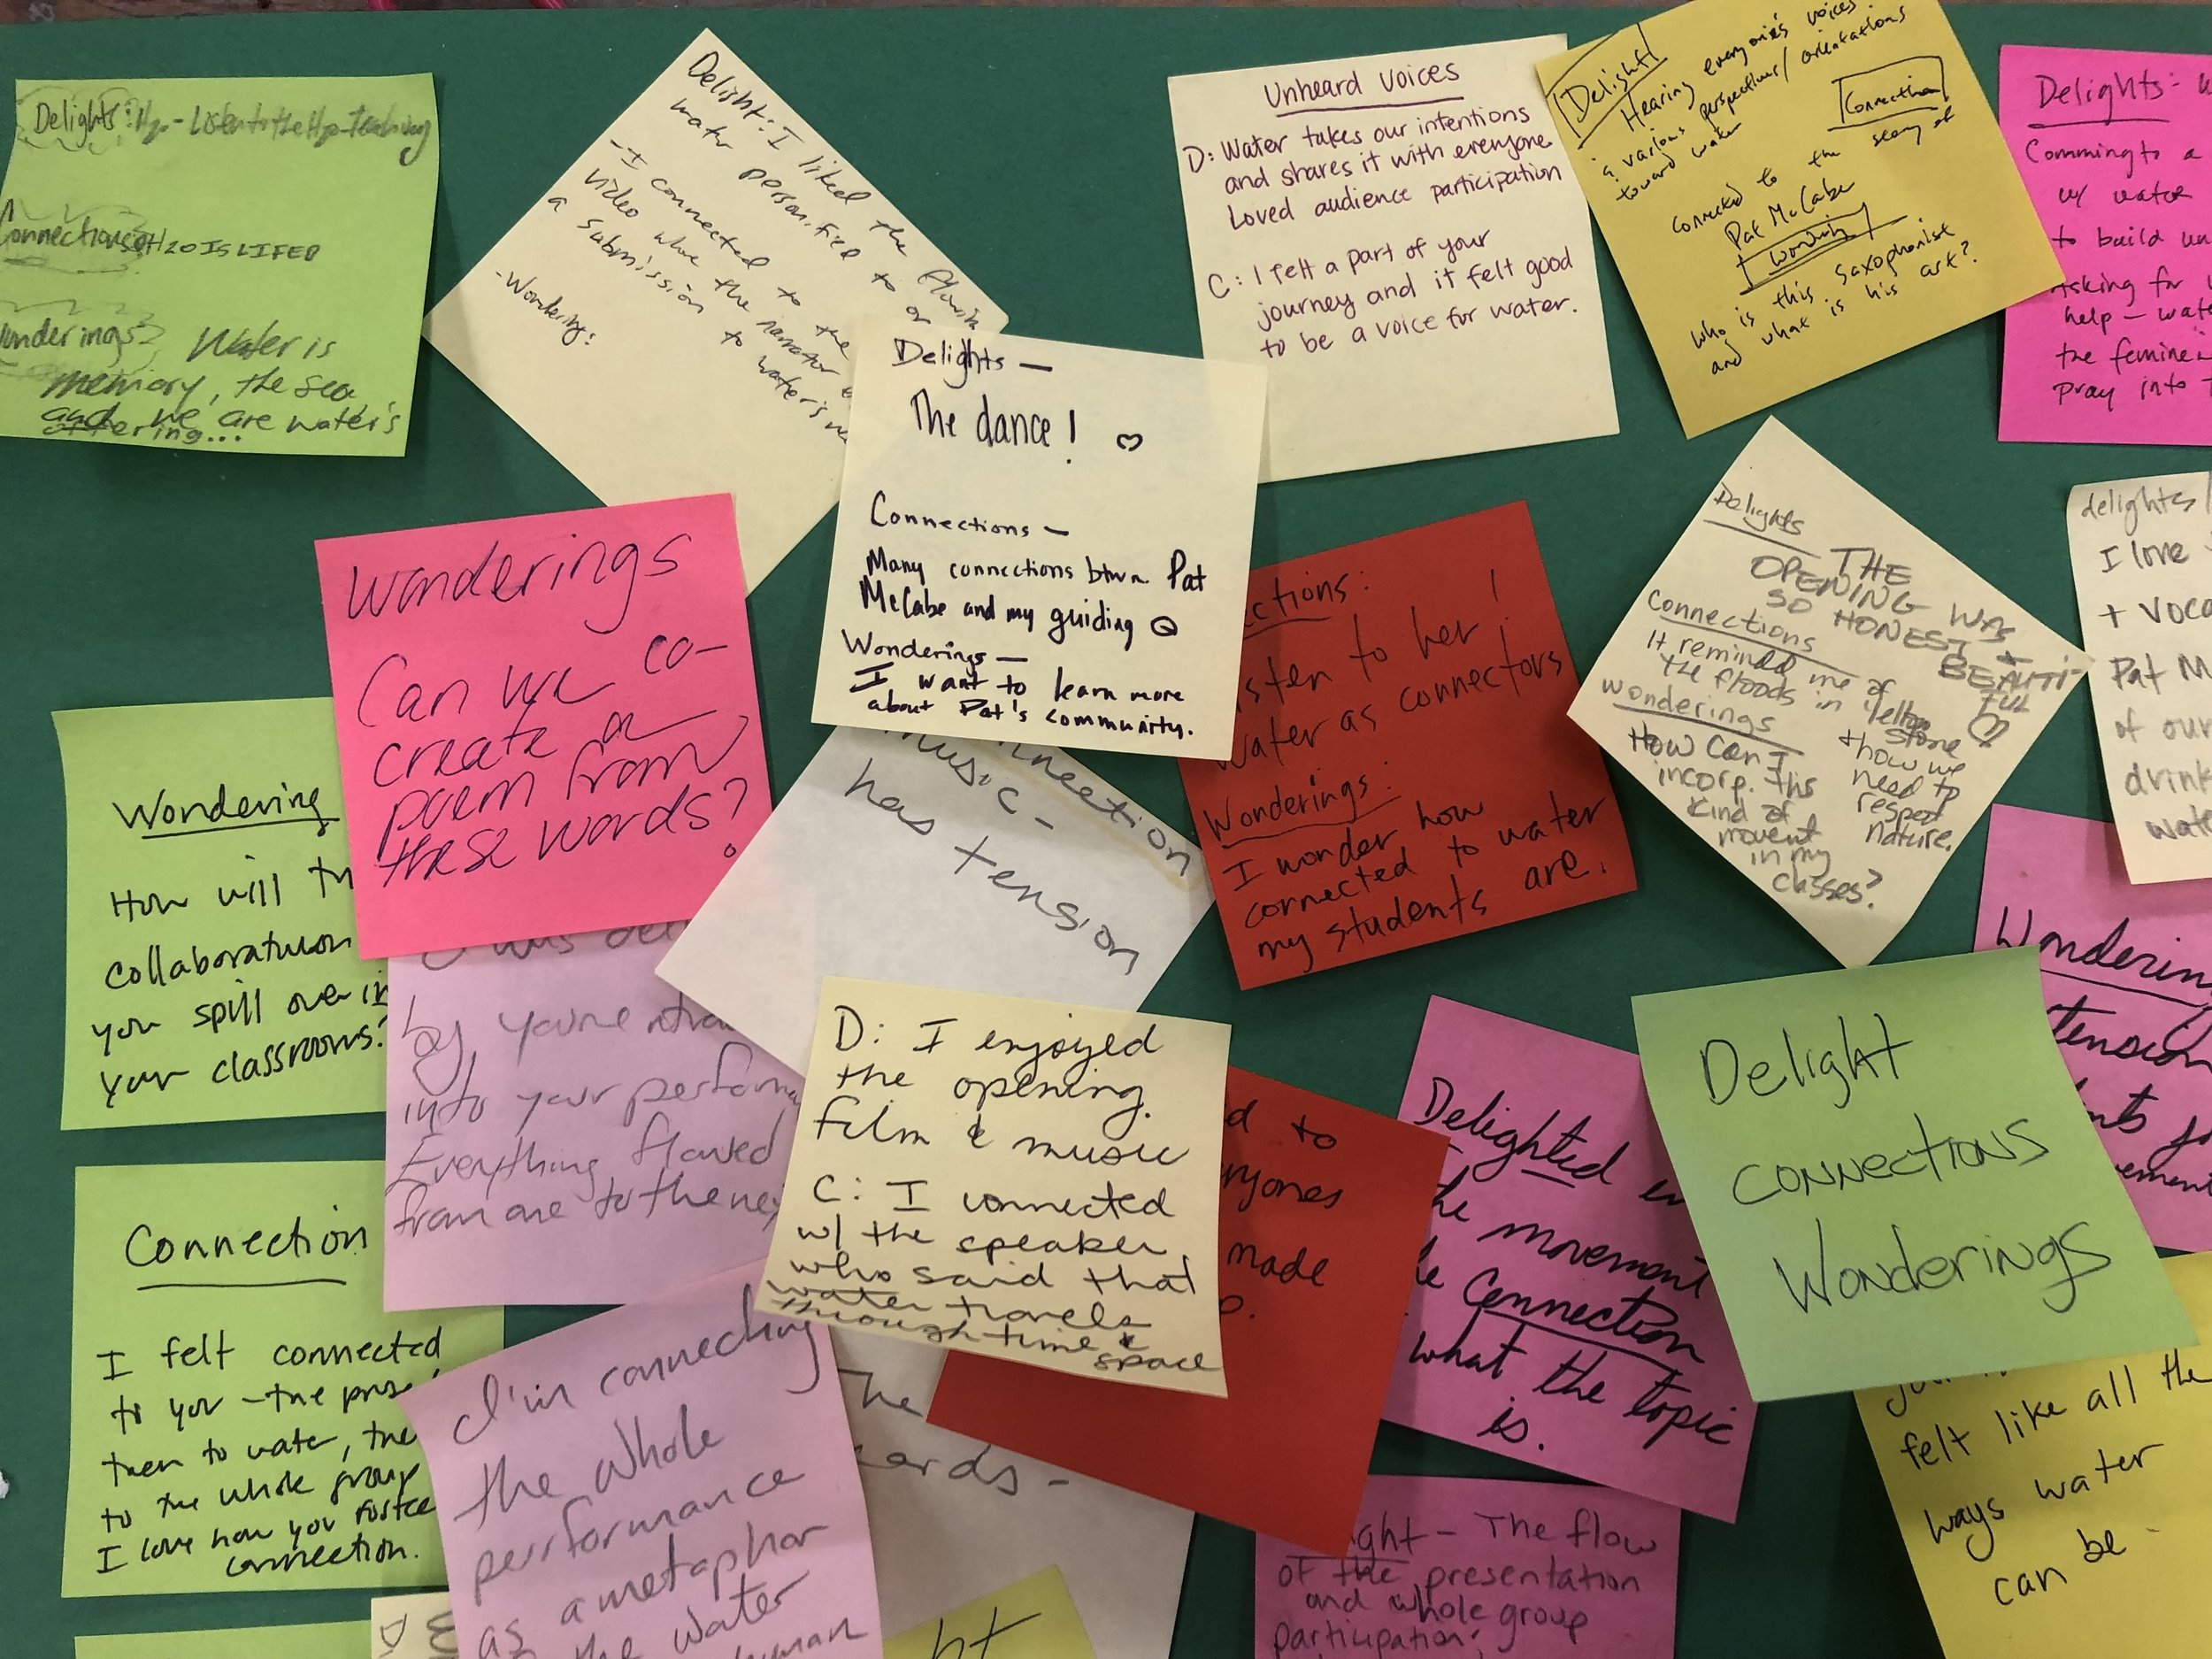 Delights: H2o - Listen to the H2o Teaching
Connections H2O IS LIFE
Wonderings Water is
memory, the sea
and we are water's
offering...
Delight: I liked the
water personified to or
- I connected to the
video where the narrator
a submission to water's
- Wonderings:
Unheard Voices
D: Water takes our intentions
and shares it with everyone
Loved audience participation
C: I felt a part of your
journey and it felt good
to be a voice for water.
Delight
Hearing everyone's voices
& various perspectives/orientations
toward water
Connection
connected to the story of
Pat McCabe
Wondering
who is this saxophonist
and what is his art?
Delights:
Comming to a
w/ water
to build
Asking for
help - wate
the feminine
pray into
Delights -
The dance!
Connections -
Many connections btwn Pat
McCabe and my guiding Q
Wonderings -
I want to learn more
about Pat's community.
Wonderings
Can we co-
create a
poem from
these words?
ctions:
sten to her!
Water as connectors
Wonderings:
I wonder how
connected to water
my students are.
Delights
THE
OPENING WAS
SO HONEST +
BEAUTI-
FUL
Connections
It remindd me of
the floods in Yellow
stone
+ how we
need to
respect
nature.
Wonderings
How can I
incorp. this
kind of
movent
in my
classes?
delights/
I love
+ voca
Pat M
of our
drink
wate
Wondering
How will th
collaboration
you spill over in
your classrooms?
nnection
music -
has tension
by, you're
into your performa
Everything flowed
from one to the nex
D: I enjoyed
the opening.
film & music
C: I connected
w/ the speaker
who said that
water travels
through time &
space
d to
ryones
made
Delighted in
the movement
Connection
what the topic
is.
Delight
Connections
Wonderings
Wondering
tension
Connection
I felt connected
to you - the
then to water, the
to the whole group
I love how you foster
connection.
I'm connecting
the whole
performance
as a metaphor
the water
human
The
ards -
ght - The flow
of the presentation
and whole group
participation;
felt like all the
ways water
can be